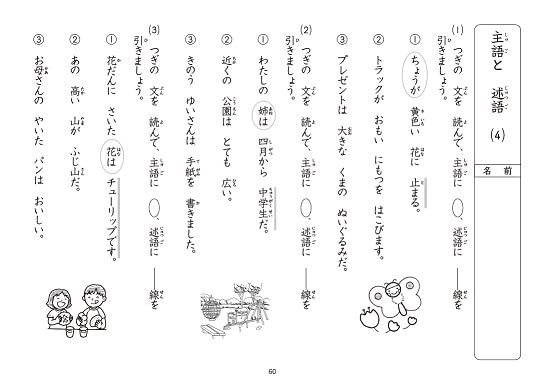 主語と 述語 (4)
名前
(1) つぎの 文を 読んで、主語に ◯、述語に ──線を
引きましょう。
① ちょうが 黄色い 花に 止まる。
② トラックが おもい にもつを はこびます。
③ プレゼントは 大きな くまの ぬいぐるみだ。
(2) つぎの 文を 読んで、主語に ◯、述語に ──線を
引きましょう。
① わたしの 姉は 四月から 中学生だ。
② 近くの 公園は とても 広い。
③ きのう ゆいさんは 手紙を 書きました。
(3) つぎの 文を 読んで、主語に ◯、述語に ──線を
引きましょう。
① 花だんに さいた 花は チューリップです。
② あの 高い 山が ふじ山だ。
③ お母さんの やいた パンは おいしい。
60